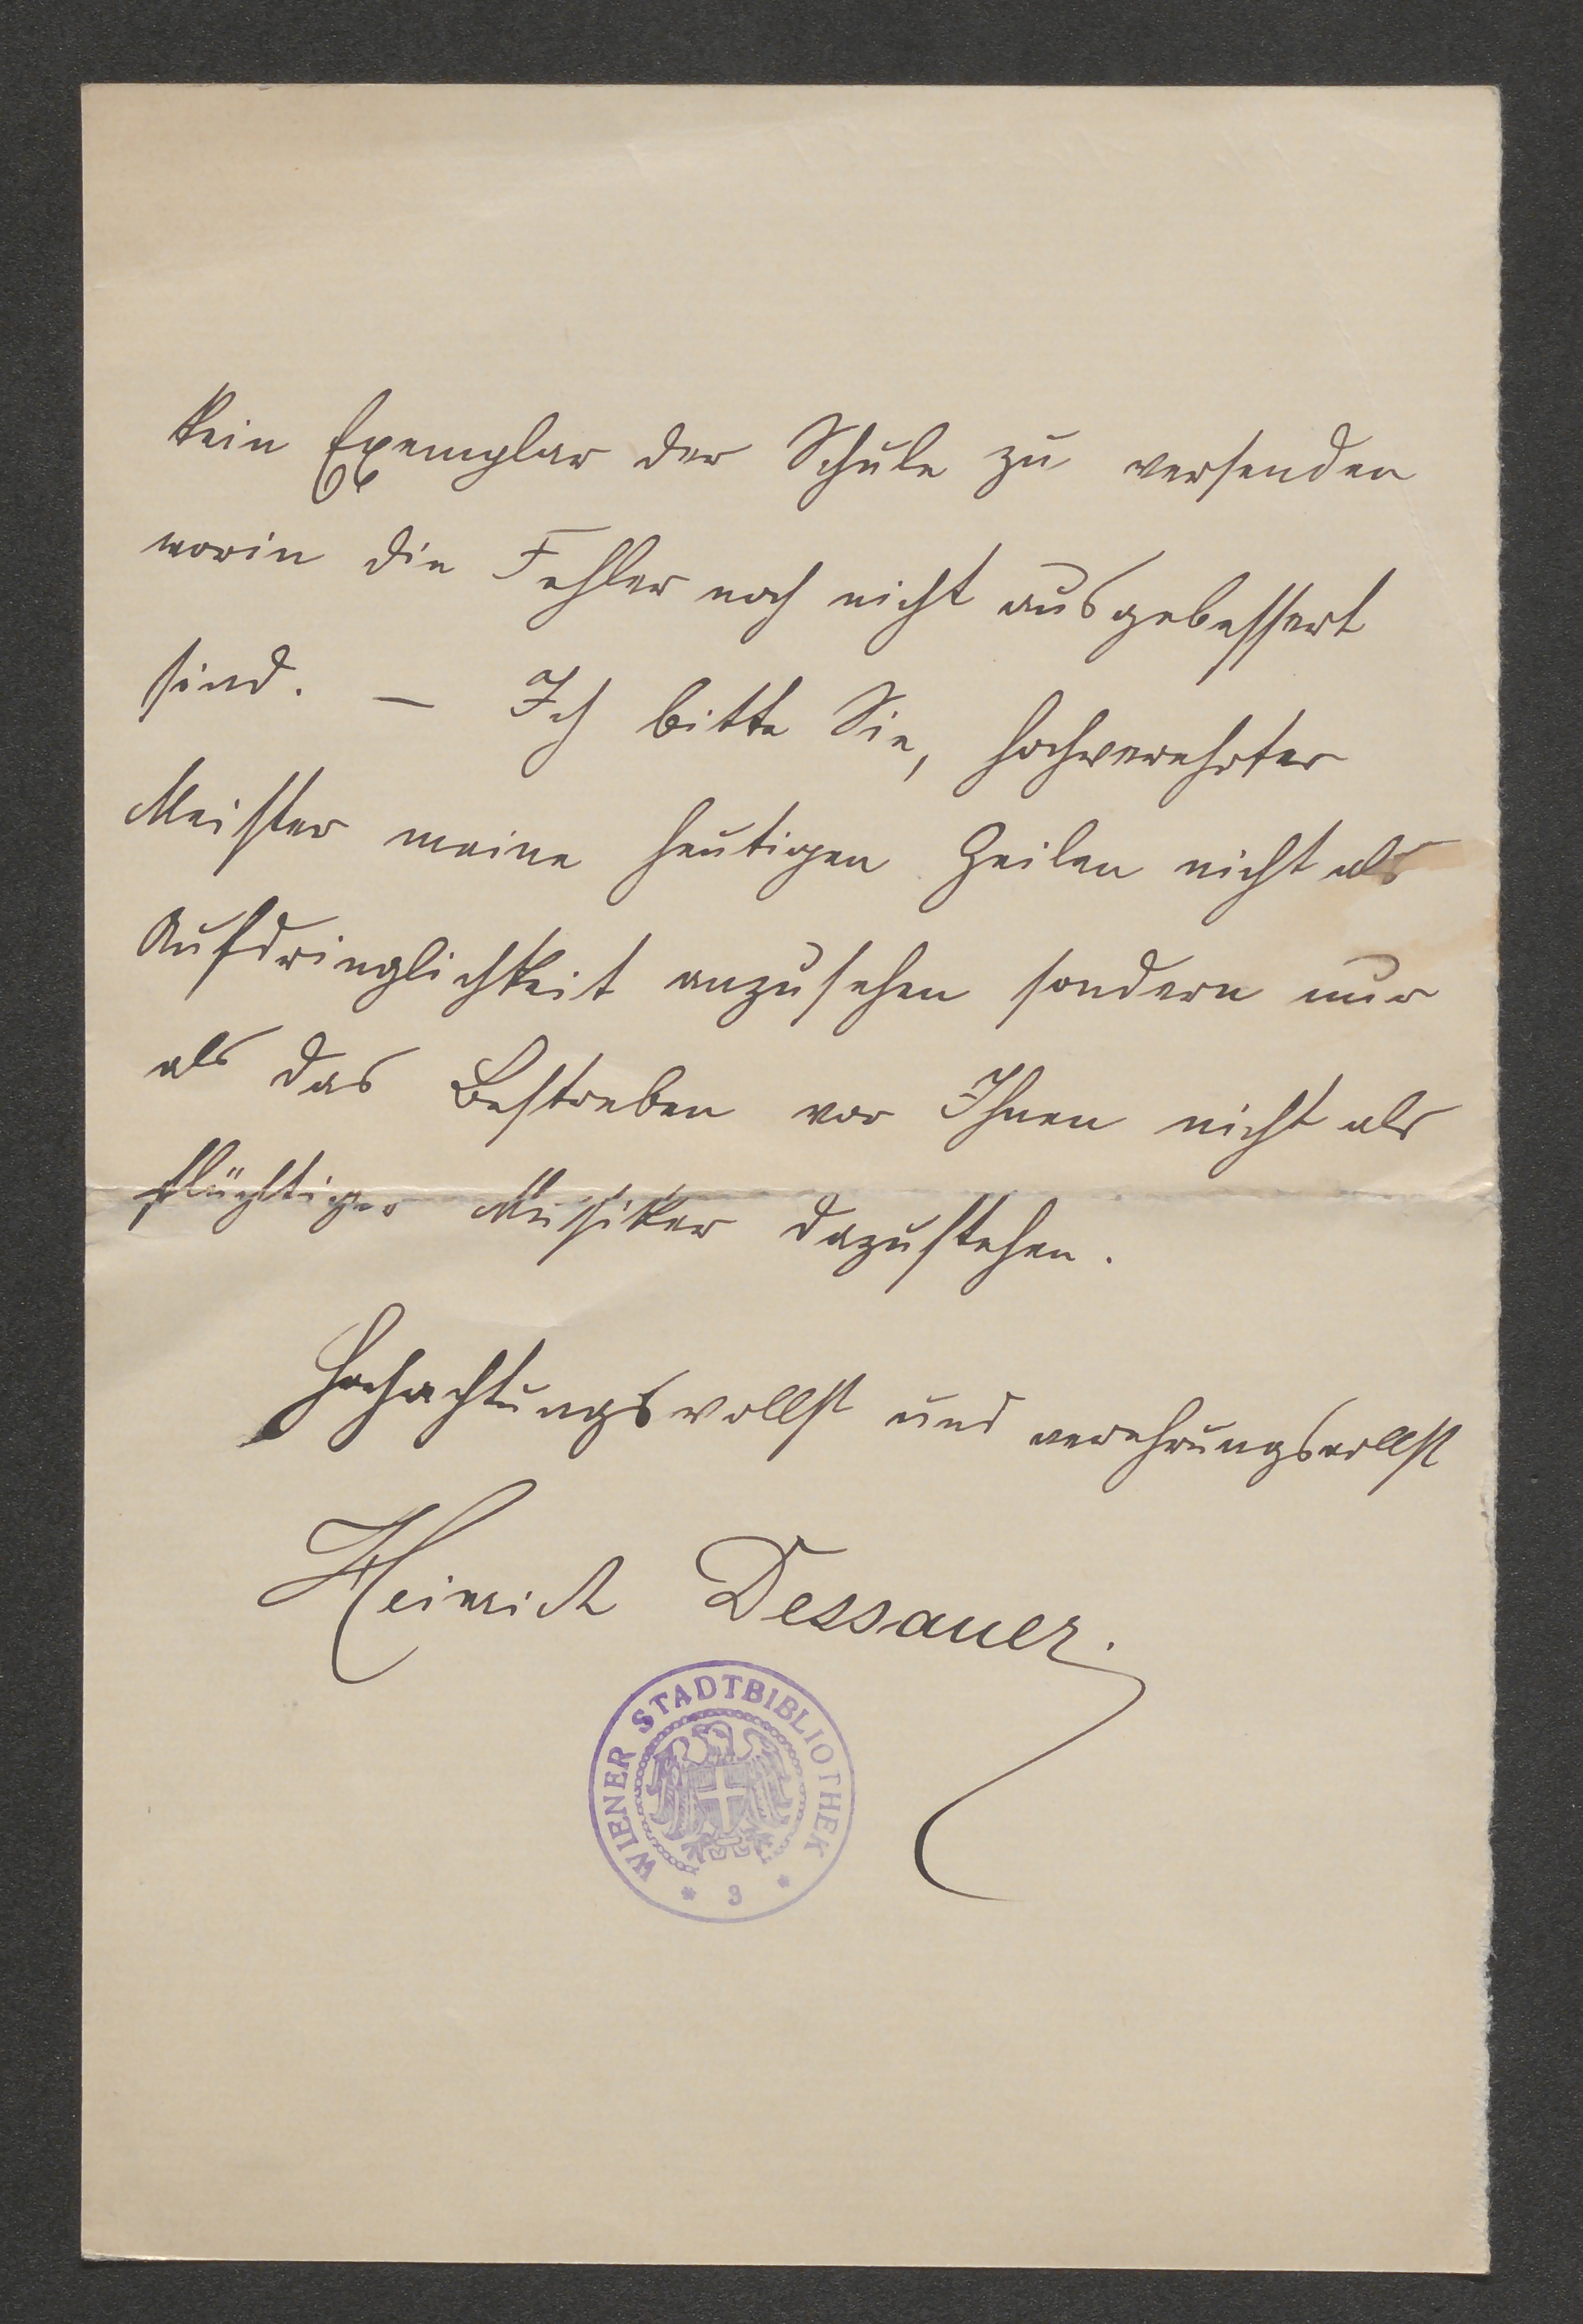 kein Exemplar der Schule zu versenden
worin die Fehler noch nicht ausgebessert
sind. — Ich bitte Sie, hochverehrter
Meister meine heutigen Zeilen nicht als
Aufdringlichkeit anzusehen sondern nur
als das Bestreben vor Ihnen nicht als
flüchtiger Musiker dazustehen.
Hochachtungsvollst und verehrungsvollst
Heinrich Dessauer.
WIENER STADTBIBLIOTHEK
* 3 *